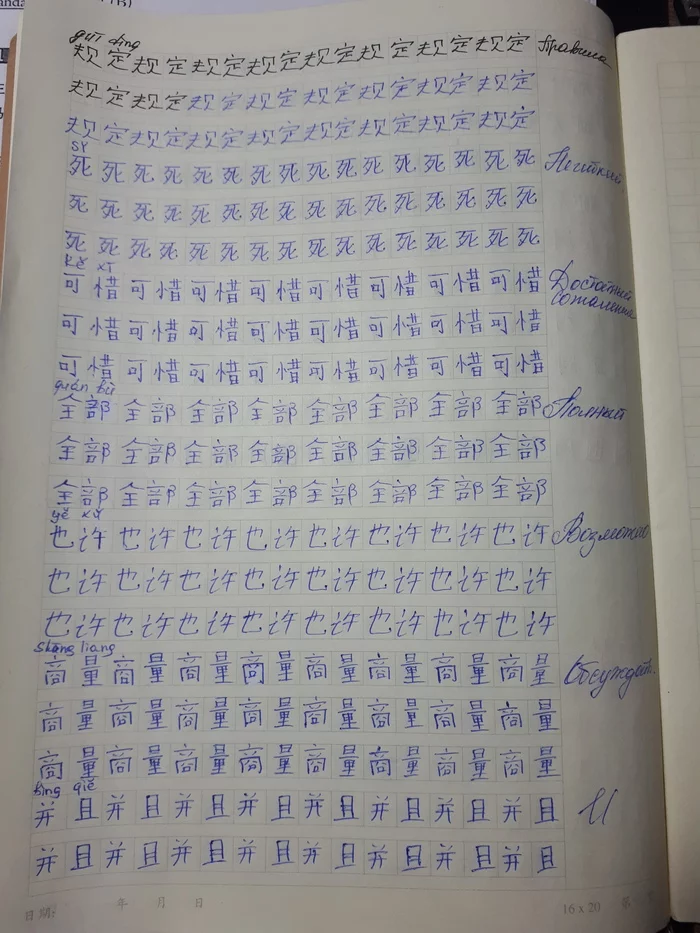 guī dìng
规定规定规定规定规定规定规定规定 Правила
规定规定规定规定规定规定规定规定
规定规定规定规定规定规定规定规定
sǐ
死死死死死死死死死死死死死死死死 Негибкий
死死死死死死死死死死死死死死死死
死死死死死死死死死死死死死死死死
kě xī
可惜可惜可惜可惜可惜可惜可惜可惜 Достойный
сожаления
可惜可惜可惜可惜可惜可惜可惜可惜
可惜可惜可惜可惜可惜可惜可惜可惜
quán bù
全部全部全部全部全部全部全部全部 Полный
全部全部全部全部全部全部全部全部
全部全部全部全部全部全部全部全部
yě xǔ
也许也许也许也许也许也许也许也许 Возможно
也许也许也许也许也许也许也许也许
也许也许也许也许也许也许也许也许
shāng liang
商量商量商量商量商量商量商量商量 Обсуждать
商量商量商量商量商量商量商量商量
商量商量商量商量商量商量商量商量
bìng qiě
并且并且并且并且并且并且并且并且 И
并且并且并且并且并且并且并且并且
日期: 年 月 日 16 x 20 第